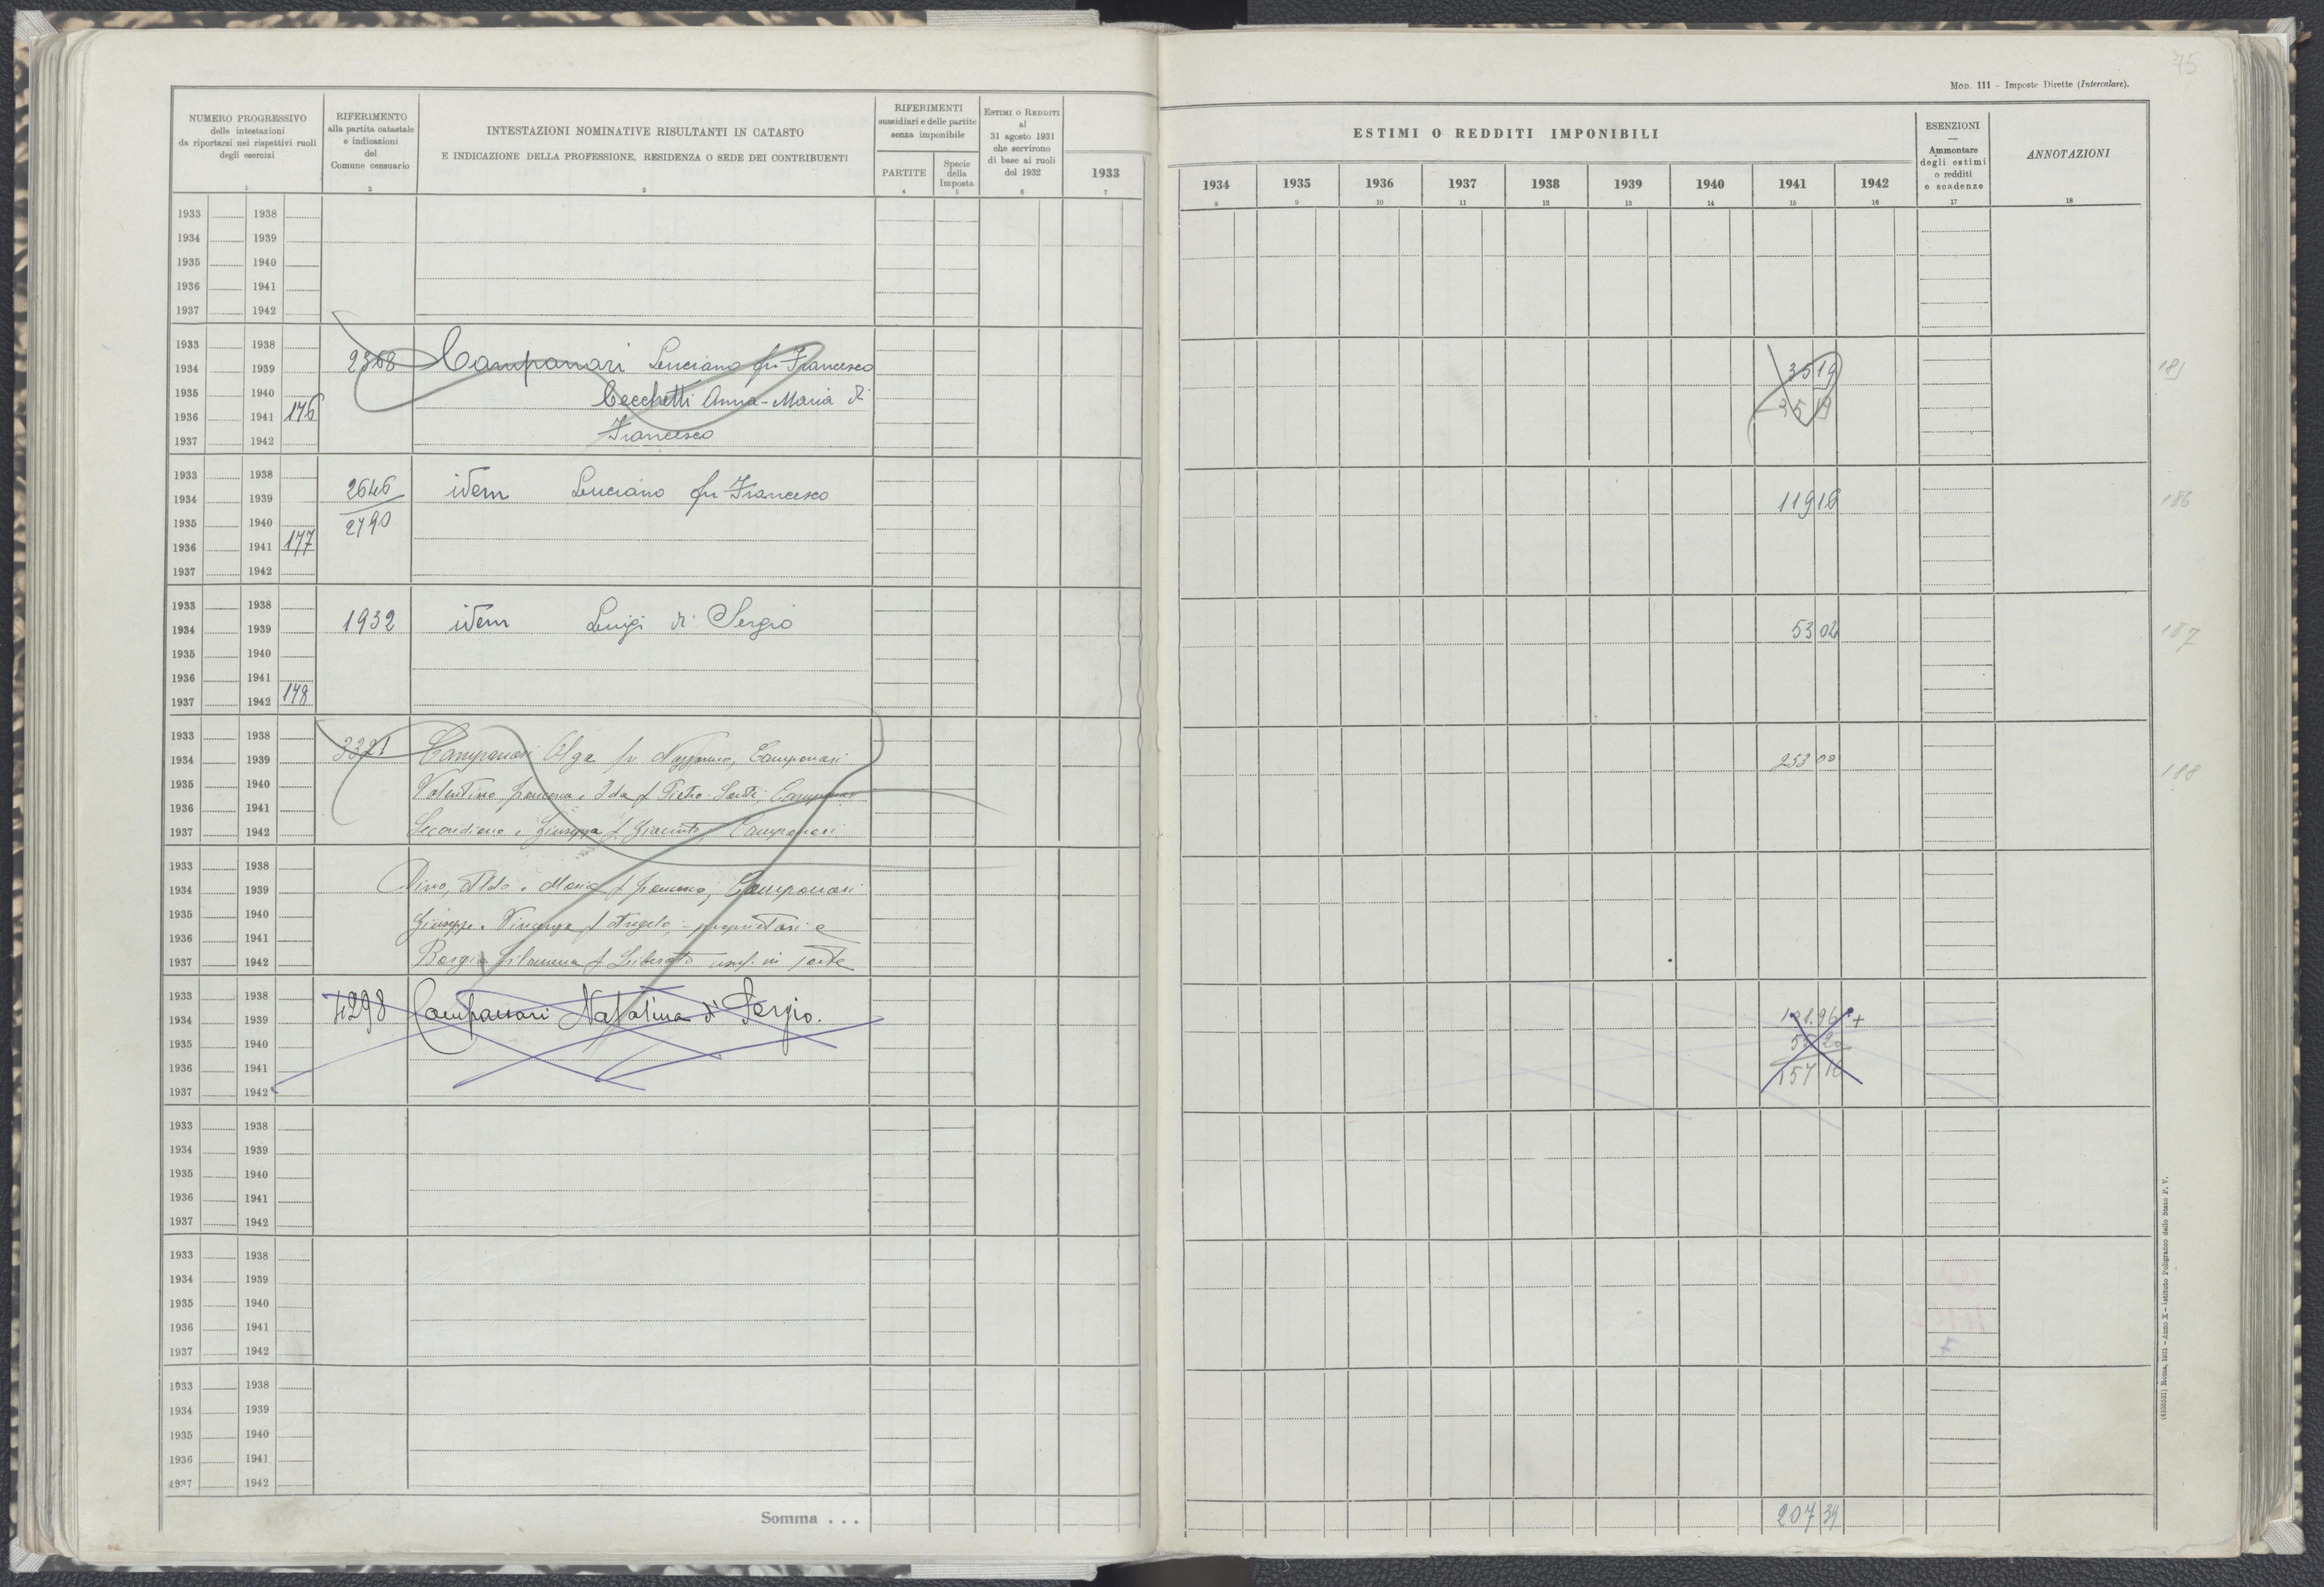 75
Mod. 111 – Imposte Dirette (Intercalare).
NUMERO PROGRESSIVO
delle intestazioni
da riportarsi nei rispettivi ruoli
degli esercizi
1
RIFERIMENTO
alla partita catastale
e indicazioni
del
Comune censuario
2
INTESTAZIONI NOMINATIVE RISULTANTI IN CATASTO
E INDICAZIONE DELLA PROFESSIONE, RESIDENZA O SEDE DEI CONTRIBUENTI
3
RIFERIMENTI
sussidiari e delle partite
senza imponibile
PARTITE
4
Specie
della
Imposta
5
Estimi o Redditi
al
31 agosto 1931
che servirono
di base ai ruoli
del 1932
6
1933
7
ESTIMI O REDDITI IMPONIBILI
1934 1935 1936 1937 1938 1939 1940 1941 1942
8 9 10 11 12 13 14 15 16
ESENZIONI
—
Ammontare
degli estimi
o redditi
e scadenze
17
ANNOTAZIONI
18
1933 1938
1934 1939
1935 1940
1936 1941
1937 1942
1933 1938
1934 1939 2368 Campanari Luciano fu Francesco 35 19 185
1935 1940 Cecchetti Anna-Maria di
1936 1941 176 35 19
1937 1942 Francesco
1933 1938
1934 1939 2646 idem Luciano fu Francesco 119 16 186
1935 1940 2790
1936 1941 177
1937 1942
1933 1938
1934 1939 1932 idem Luigi di Sergio 53 02 187
1935 1940
1936 1941
1937 1942 178
1933 1938
1934 1939 3321 Campanari Olga fu Nazzareno, Campanari 253 00 188
1935 1940 Valentino, Francesco e Ida f Pietro-Santi, Campanari
1936 1941
1937 1942 Secondiano e Giuseppa f Giacinto, Campanari
1933 1938
1934 1939 Dino, Aldo e Maria f Francesco, Campanari
1935 1940 Giuseppe e Vincenza f Angelo, = proprietari e
1936 1941
1937 1942 Borgia Filomena f Liberato usuf. in parte
1933 1938
1934 1939 4298 Campanari Natalina di Sergio. 101.96 +
1935 1940 55 20
1936 1941 157 16
1937 1942
1933 1938
1934 1939
1935 1940
1936 1941
1937 1942
1933 1938
1934 1939
1935 1940
1936 1941
1937 1942
1933 1938
1934 1939
1935 1940
1936 1941
1937 1942
Somma . . . 207 34
Roma, 1931 – Anno X – Istituto Poligrafico dello Stato P. V.